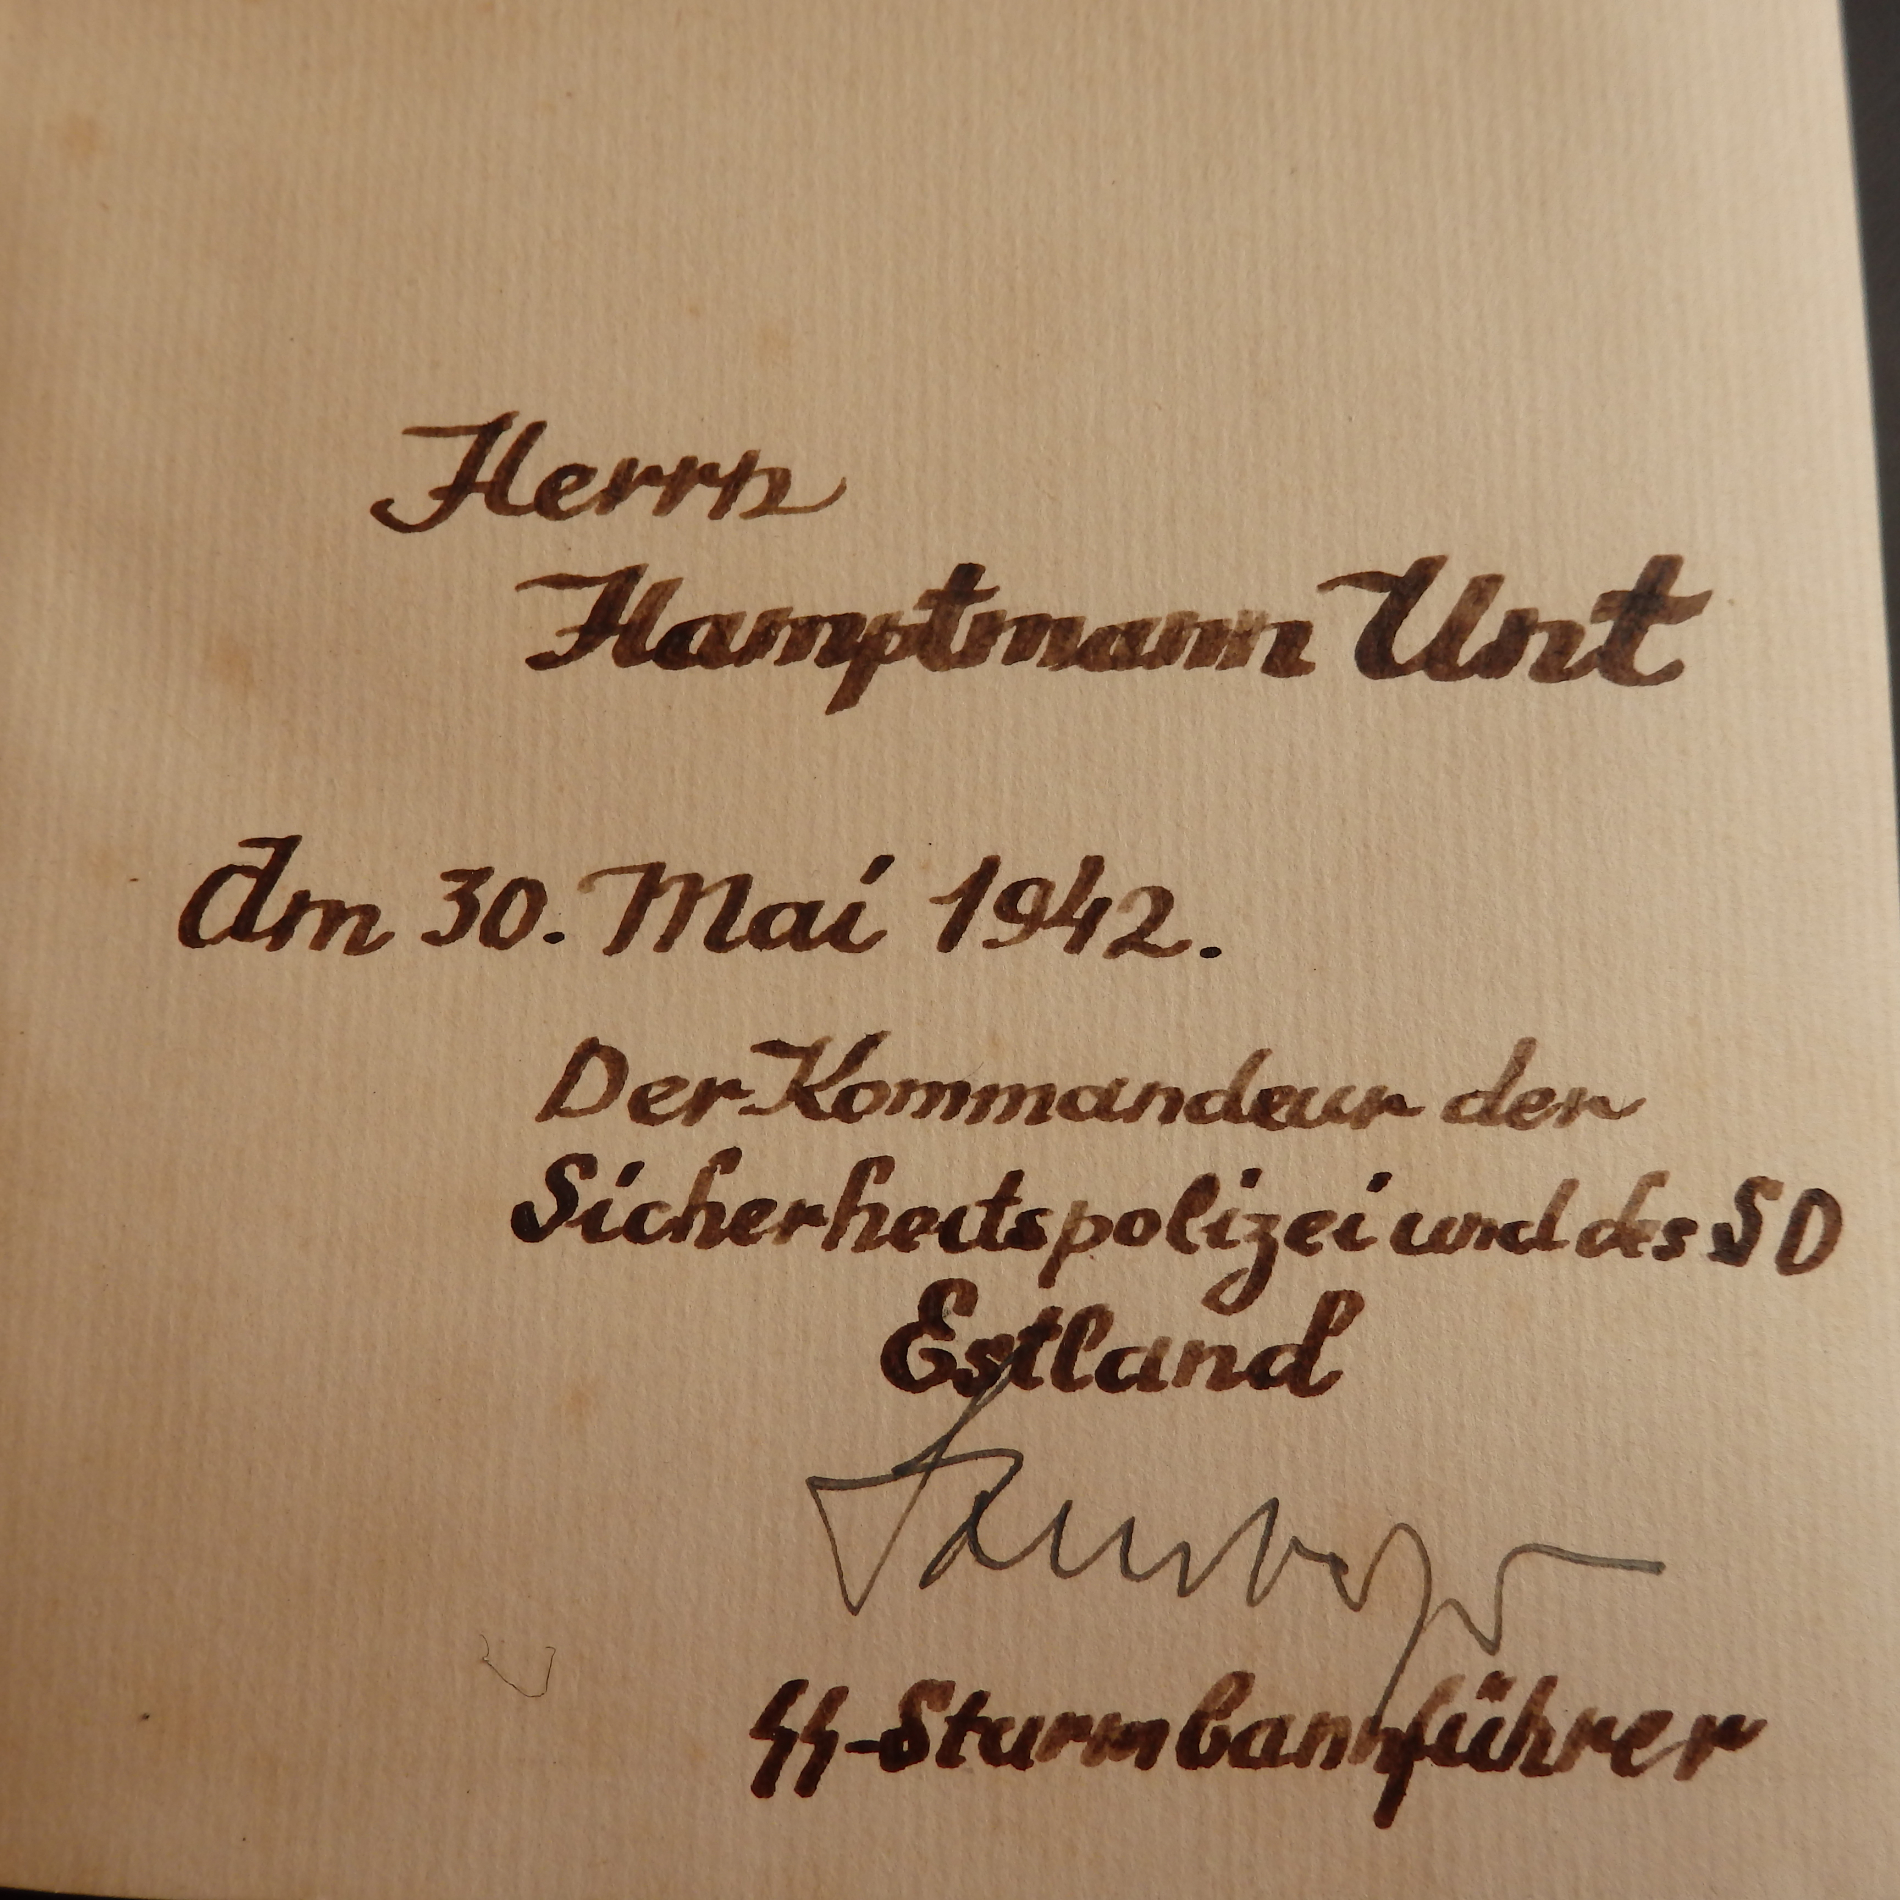 Herrn
Hauptmann Unt
Am 30. Mai 1942.
Der Kommandeur der
Sicherheitspolizei und des SD
Estland
SS-Sturmbannführer